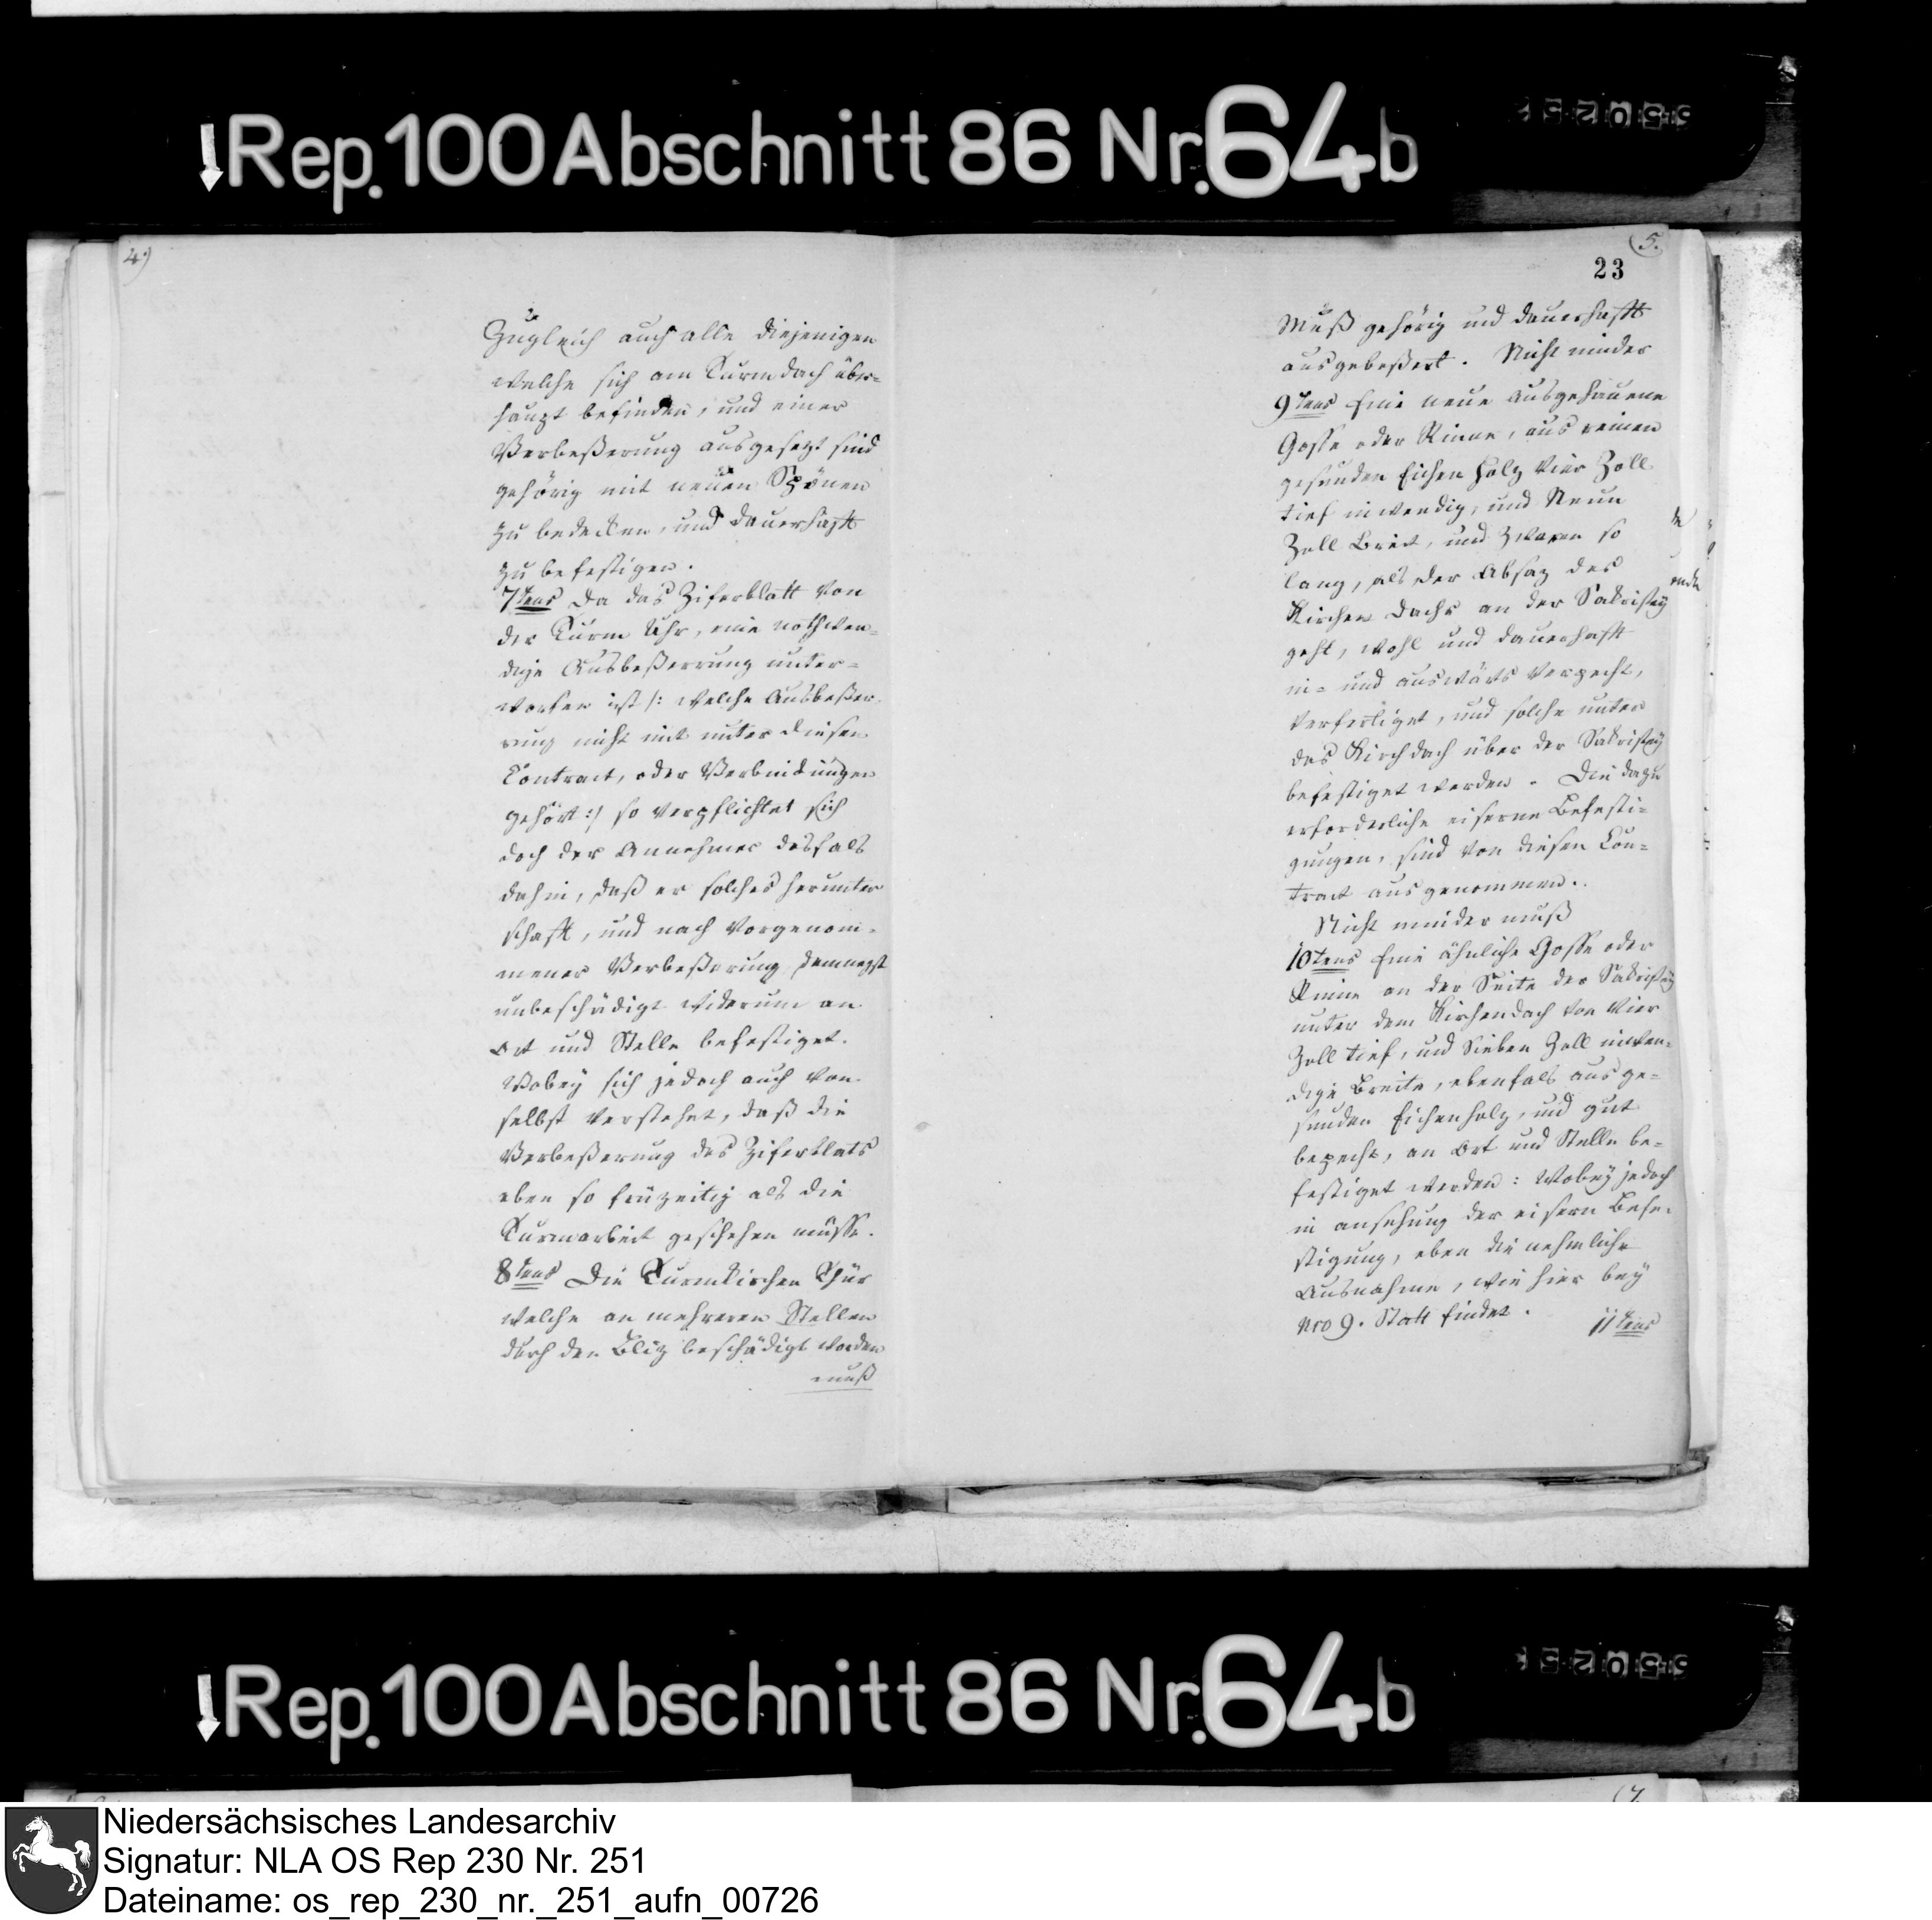 Rep. 100 Abschnitt 86 Nr. 64b
4.)
Zugleich auch alle diejenigen
welche sich am Turmdach über=
haupt befinden, und einer
Verbeßerung ausgesezt sind
gehörig mit neuen Spönen
zu bedecken, und dauerhaft
zu befestigen.
7tens Da das Ziferblatt von
der Turm Uhr, eine nothwen=
dige Ausbeßerrung unter=
worfen ist /: welche Ausbeßer
rung nicht mit unter diesen
Contract, oder Verbindungen
gehört :/ so verpflichtet sich
doch der Annehmer desfals
dahin, daß er solches herunter
schaft, und nach vorgenom=
mener Verbeßerung demnegst
unbeschädigt widerum an
Ort und Stelle befestiget.
Wobey sich jedoch auch von
selbst verstehet, daß die
Verbeßerung des Ziferblats
eben so früzeitig als die
Turmarbeit geschehen müsse.
8tens Die Turmkirchen Thür
welche an mehreren Stellen
durch den Bliz beschädigt worden
muß
(5.
23
Muß gehörig und dauerhaft
ausgebeßert. Nicht minder
9tens Eine neue Ausgehauene
Gosse oder Rinne, aus reinen
gesunden Eichen Holz Vier Zoll
tief inwendig, und Neun
Zoll Breit, und zwaren so
lang, als der Absaz des
Kirchen Dachs an der Sakristey
geht, wohl und dauerhaft
in= und auswärts verpecht,
verfertiget, und solche unter
das Kirchdach über der Sakristey
befestiget werden. Die dazu
erforderliche eiserne Befesti=
gungen, sind von diesen Con=
tract ausgenommen.
Nicht minder muß
10tens Eine ähnliche Gosse oder
Rinne an der Seite der Sakristey
unter dem Kirchendach von Vier
Zoll tief, und Sieben Zoll inwen=
dige Breite, ebenfals aus ge=
sunden Eichenholz, und gut
bepecht, an Ort und Stelle be=
festiget werden: Wobey jedoch
in ansehung der eisern Befe=
stigung, eben die nehmliche
Ausnahme, wie hier bey
Nro 9. Statt findet.
11tens
Rep. 100 Abschnitt 86 Nr. 64b
Niedersächsisches Landesarchiv
Signatur: NLA OS Rep 230 Nr. 251
Dateiname: os_rep_230_nr._251_aufn_00726